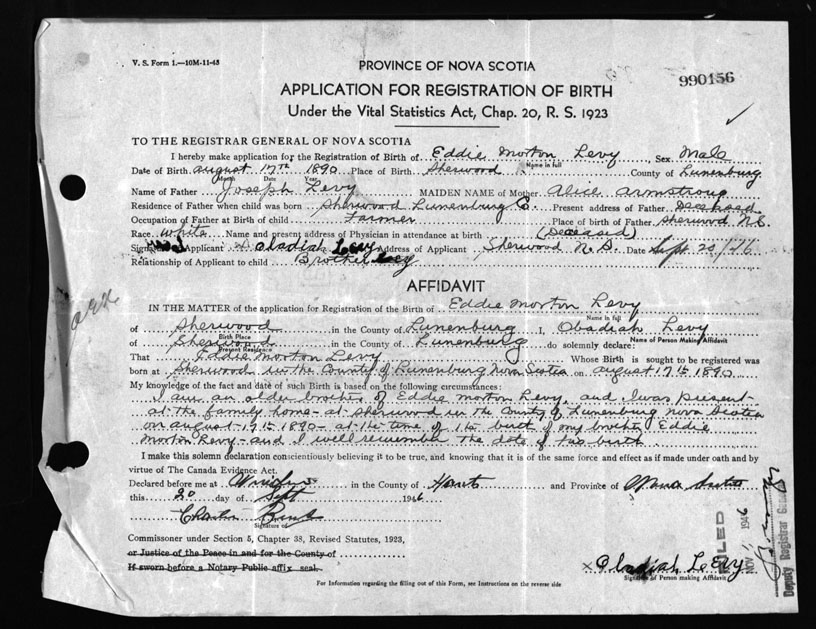 V. S. Form 1.—10M-11-45
PROVINCE OF NOVA SCOTIA
APPLICATION FOR REGISTRATION OF BIRTH
990156
Under the Vital Statistics Act, Chap. 20, R. S. 1923
TO THE REGISTRAR GENERAL OF NOVA SCOTIA
I hereby make application for the Registration of Birth of Eddie Morton Levy Sex Male
Name in full
Date of Birth August 17th 1890 Place of Birth Sherwood County of Lunenburg
Month Date Year
Name of Father Joseph Levy MAIDEN NAME of Mother Alice Armstrong
Residence of Father when child was born Sherwood Lunenburg Co. Present address of Father Deceased
Occupation of Father at Birth of child Farmer Place of birth of Father Sherwood N.S.
Race White Name and present address of Physician in attendance at birth (Deceased)
Applicant Obadiah Levy Address of Applicant Sherwood N.S. Date Sept. 20/46
Relationship of Applicant to child Brother
AFFIDAVIT
IN THE MATTER of the application for Registration of the Birth of Eddie Morton Levy
Name in full
of Sherwood in the County of Lunenburg I, Obadiah Levy
Birth Place Name of Person Making Affidavit
of Sherwood in the County of Lunenburg do solemnly declare:
Present Residence
That Eddie Morton Levy Whose Birth is sought to be registered was
born at Sherwood in the County of Lunenburg Nova Scotia on August 17th 1890
My knowledge of the fact and date of such Birth is based on the following circumstances:
I am an older brother of Eddie Morton Levy, and I was present
at the family home at Sherwood in the County of Lunenburg Nova Scotia
on August 17th 1890 at the time of the birth of my brother Eddie
Morton Levy and I well remember the date of his birth
I make this solemn declaration conscientiously believing it to be true, and knowing that it is of the same force and effect as if made under oath and by
virtue of The Canada Evidence Act.
Declared before me at Windsor in the County of Hants and Province of Nova Scotia
this 20 day of Sept 1946
Charles
Signature of
Commissioner under Section 5, Chapter 38, Revised Statutes, 1923,
or Justice of the Peace in and for the County of
If sworn before a Notary Public affix seal.
x Obadiah Levy
Signature of Person making Affidavit
For Information regarding the filling out of this Form, see Instructions on the reverse side
FILED
NOV 1946
Deputy Registrar General